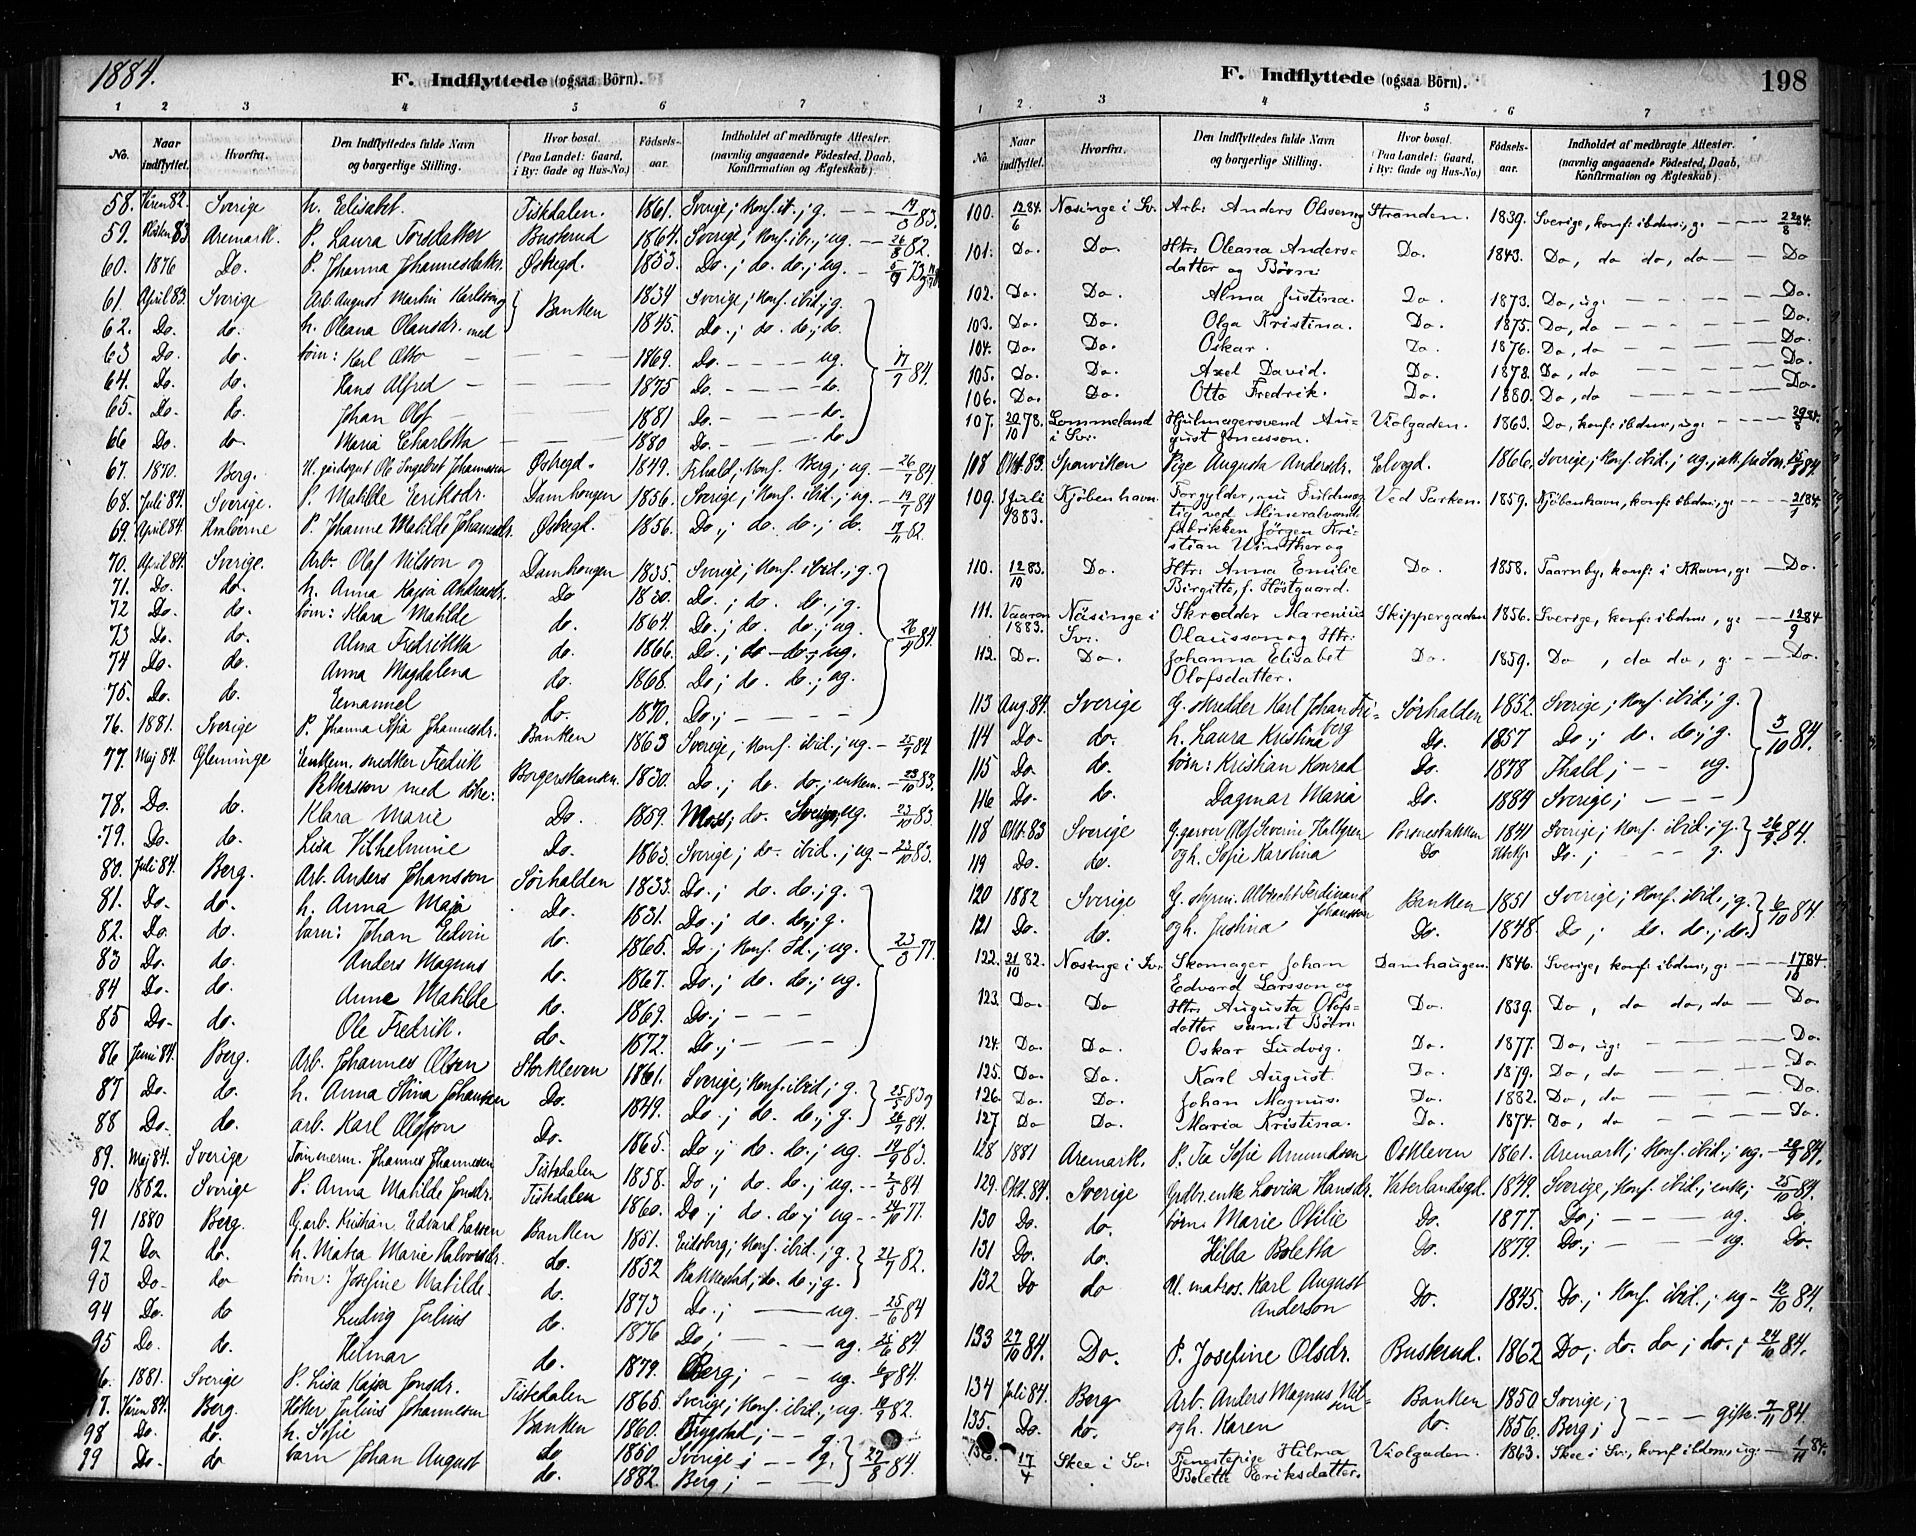 1884.
F. Indflyttede (ogsaa Börn).
1 2 3 4 5 6 7
No. Naar indflyttet. Hvorfra. Den Indflyttedes fulde Navn og borgerlige Stilling. Hvor bosat. (Paa Landet: Gaard, i By: Gade og Hus-No.) Fødsels-aar. Indholdet af medbragte Attester. (navnlig angaaende Födested, Daab, Konfirmation og Ægteskab)
58. 82. Sverige h. Elisabet. Tistedalen. 1861. Sverige; Konf. ; g. — — 83.
59. 83 Aremark. P. Laura Torsdatter Buskerud 1864. Sverige; Konf. ib.; ug. — 26/8 82.
60. 1876 Do. P. Johanna Johannesdatter. Østregd. 1853. Do.; do. do.; ug. —
61. April 83. Sverige Arb. August Martin Karlsson og Banken 1834 Sverige; Konf. ibid.; g.
62. Do. do. h. Oleana Olausdr. med 1845. Do.; do. do.; do.
63 Do. do. börn: Karl Otto — — — — 1869. Do. — — — ug. 17/7 84.
64. Do. do. Hans Alfred — — — — 1875 Do. — — — do.
65. Do. do. Johan Olof — — — — 1881 Do. — — — do.
66 Do. do. Maria Charlotta 1880 Do. — — — do
67. 1870. Berg. Ole Ingebret Johannesen Østregd. 1849. Frhald; Konf. Berg; ug. — 26/7 84.
68. Juli 84. Sverige. P. Matilde Eriksdr. Damhougen 1856. Sverige; Konf. ibid.; ug. — 19/7 84
69. April 84. P. Johanne Matilde Johansdr. Østregd. 1856. Do.; do. do.; do. 82.
70. April 84. Sverige. Arb. Olaf Nilsson og Damhougen 1835. Sverige; Konf. ibid.; g.
71. Do. do. h. Anna Kajsa Andreasdr. Do 1830. Do.; do. do.; g.
72 Do. do. börn: Klara Matilde do. 1864. Do.; do. do.; ug.
73 Do. do. Alma Fredrikka do. 1866. Do.; do do.; ug. 84.
74 Do. do. Anna Magdalena do. 1868. Do; do. do.; ug.
75. Do. do. Emanuel do. 1870. Do.; — — — —
76. 1881. Sverige P. Johanna Johannesdr. Banken 1863 Sverige; Konf. ibid.; ug. — 25/7 84
77. Maj 84. Glemminge Enkem. snedker Fredrik
Pettersson med Borgerskansen. 1830. Do.; do. do.; enkem. — 23/10 83.
78. Do. do. Klara Marie Do. 1859. Moss; do. Sverige; ug. 23/10 83.
79. Do. do. Lisa Vilhelmine Do. 1863. Sverige; do. ibid.; ug. — 23/10 83.
80. Juli 84. Berg. Arb. Anders Johansson Sørhalden 1833. Do.; do. do.; g.
81. Do. do. h. Anna Maja Do. 1831. Do.; do. do.; g.
82. Do. do. barn: Johan Edvin do. 1865. Do; Konf. ; ug. 77.
83 Do. do. Anders Magnus do. 1867. Do.; do. do.; ug.
84 Do. do. Anne Matilde do. 1869. Do.; — — —
85 Do. do. Ole Fredrik. do. 1872. Do.; — — —
86 Juni 84. Berg. Arb. Johannes Olsen Storkleven 1861. Sverige; Konf. ibid.; g.
87 Do. do. h. Anna Stina Johansen Do. 1849. Do.; do. do.; g.
88 Do. do. arb. Karl Olofson Do. 1865. Do.; do. do.; ug. 83.
89. Maj 84. Sverige Tømmerm. Johannes Johannesen Tistedalen 1858. Do.; do. do.; ug. — 84
90 1882. Sverige P. Anna Matilde Jonsdr. Tistedalen 1860. Do.; do. do.; ug — 77.
91 1880 Berg. G. arb. Kristian Edvard Larsen Banken 1851. Eidsberg; Konf. ibid.; g. 82.
92 Do do. h. Matea Marie Halvorsdr. do. 1852 Rakkestad; do. do.; g.
93 Do. do börn: Josefine Matilde. do. 1873 Do.; — ug. 25/6 84
94 Do. do Ludvig Julius do. 1876 Do; — ug. 25/6 84
95 Do. do. Helmar do. 1879. Berg; — — ug. 6/8 84.
96. 1881. Sverige P. Lisa Kajsa Jonsdr. Tistedalen 1865. Sverige; Konf. ibid.; ug. 82.
97. 84. Berg. Julius Johannesen Banken 1860. Trygstad; — — g.
98 Do. do. h. Sofie do 1850 Sverige; — — g. 27/8 84.
99 Do. do barn Johan August do. 1882. Berg; — —
F. Indflyttede (ogsaa Börn).
198
1 2. 3 4 5 6 7
No. Naar indflyttet. Hvorfra. Den Indflyttedes fulde Navn og borgerlige Stilling. Hvor bosat. (Paa Landet: Gaard, i By: Gade og Hus-No.) Fødsels-aar. Indholdet af medbragte Attester. (navnlig angaaende Födested, Daab, Konfirmation og Ægteskab)
100. 12/6 84. Næsinge i Sv. Arb. Anders Olssen og Stranden. 1839. Sverige, konf. ibdm., g. — — — 22/8 84.
101. Do. Do. Htr. Oleana Anders-
datter og Börn: Do. 1843. Do, do do, do — — Do
102. Do. Do. Alma Justina. Do. 1873. Do, ug. — — — — Do.
103. Do. Do. Olga Kristina. Do. 1875. Do, do — — — — Do.
104. Do. Do. Oskar. Do. 1876. Do, do — — — — Do.
105. Do. Do. Axel David. Do. 1878. Do, do — — — — Do.
106. Do. Do. Otto Fredrik. Do. 1880. Do, do — — — — Do.
107. 20/10 78. Lommeland i Sv. Hjulmagersvend Au-
gust Jonasson. Violgaden. 1863. Do, konf. ibdm., ug. — — — 29/8 84.
108 Okt. 83. Spanviken Pige Augusta Andersdr. Elvegd. 1866. Sverige; Konf. ibid.; ug.; 84
109. 1 Juli 1883. Kjöbenhavn. Forgylder, nu Fuldmæg-
tig ved Mineralvands-
fabrikken Jörgen Kri-
stian Winther og Ved Parken. 1859. Kjöbenhavn, konf. ibdm., g. — — — 84.
110. 12/10 83. Do. Htr. Anna Emilie
Birgitte, f. Höstgaard. Do. 1858. Taarnby, konf. i Khavn, g. — Do.
111. Vaaren 1883. Näsinge i Sv. Skrædder Marenius
Olausson og Htr. Skippergaden 1856. Sverige, konf. ibdm., g. — 12/9 84
112. Do. Do. Johanna Elisabet
Olofsdatter. Do. 1859. Do, do do, g. — — Do.
113 Aug. 84. Sverige G. skredder Karl Johan Fri-
berg Sørhalden 1852. Sverige; Konf. ibid.; g.
114 Do. do. h. Laura Kristina Do. 1857 Do.; do. do.; g. 3/10 84.
115 Do do. börn: Kristian Konrad Do. 1878 Fhald; — — ug.
116 Do. do. Dagmar Maria Do. 1884 Sverige; — — —
118 Okt. 83 Sverige G. garver Olof Severin Hallgren Porsnesbakken 1841 Sverige; Konf. ibid.; g. 26/9 84.
119 Do. do. og h. Sofie Karolina Do Do.; — — — g.
120 1882 Sverige G. styrm. Albrecht Ferdinand
Johansson Banken 1851 Sverige; Konf. ibid.; g. 6/10 84
121 Do. do. og h. Justina Do. 1848. Do; do. do.; do.
122. 21/10 82. Næsinge i Sv. Skomager Johan
Edvard Larsson og Damhaugen. 1846. Sverige, konf. ibdm., g. — — — 17/10 84.
123. Do. Do Htr. Augusta Olofs-
datter samt Börn: Do. 1839. Do, do do, do — Do.
124. Do. Do. Oskar Ludvig. Do. 1877. Do, ug. — — — — Do.
125. Do. Do. Karl August. Do. 1879. Do, do — — — — Do.
126. Do. Do. Johan Magnus. Do. 1882. Do, do — — — — Do.
127 Do Do. Maria Kristina. Do. 1874. Do, do — — — — Do.
128 1881 Aremark. P. Tea Sofie Amundsen Oskleven 1861. Aremark; Konf. ibid.; ug. — 84.
129. Okt. 84. Sverige Grdbr. enke Lovisa Hansdr. Vaterlandsgd. 1849. Sverige; Konf. ibid.; enke; 25/10 84.
130 Do. do. börn: Marie Otilie Do. 1877. Do; — — — ug. Do
131 Do. do. Hilda Boletta Do. 1879. Do.; — — — ug. Do.
132 Do do U. matros. Karl August
Anderson Do. 1845. Do.; Konf. ibid.; ug — 12/10 84.
133 27/10 84. Do. P. Josefine Olsdr. Buskerud. 1862 Do; do. do; do.; 24/10 84.
134 Juli 84. Berg Arb. Anders Magnus Nil-
sen Banken 1850. Sverige;
135. Do. do. og h. Karen do. 1856. Berg; — — — gifte. 7/11 84.
136. 17/4 Skee i Sv. Tjenestepige Hilma
Bolette Eriksdatter. Violgaden. 1863. Skee i Sv., konf. ibdm., ug. — 1/11 84.